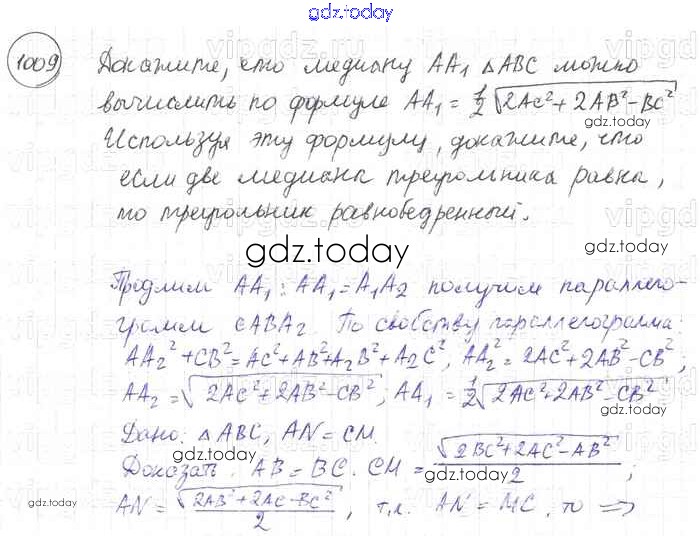 gdz.today
1009 Докажите, что медиану AA₁ △ABC можно
вычислить по формуле AA₁ = ½√(2AC²+2AB²−BC²)
Используя эту формулу, докажите, что
если две медиана треугольника равна,
то треугольник равнобедренный.
gdz.today
Продлим AA₁: AA₁=A₁A₂ получим параллело-
грамм CABA₂. По свойству параллелограмма:
AA₂²+CB²=AC²+AB²+A₂B²+A₂C², AA₂²=2AC²+2AB²−CB²;
AA₂=√(2AC²+2AB²−CB²); AA₁=½√(2AC²+2AB²−CB²)
Дано: △ABC, AN=CM.
Доказать: AB=BC. CM=√(2BC²+2AC²−AB²)/2;
AN=√(2AB²+2AC−BC²)/2, т.к. AN=MC, то ⟹
gdz.today
gdz.today
gdz.today
gdz.today
gdz.today
gdz.today